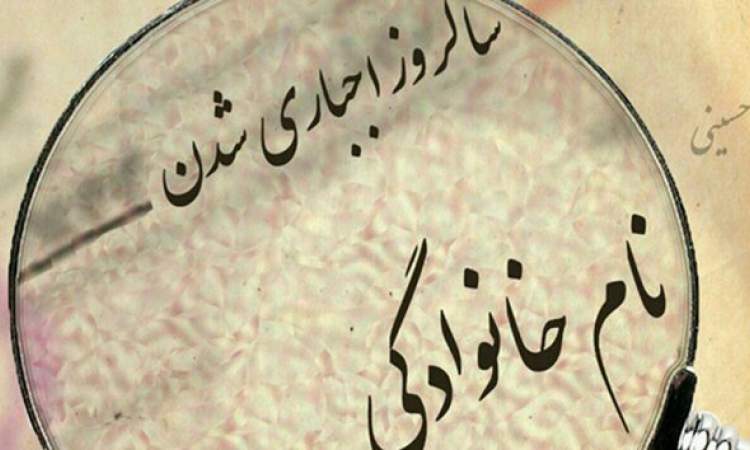 سالروز اجباری شدن
نام خانوادگی
حسینی